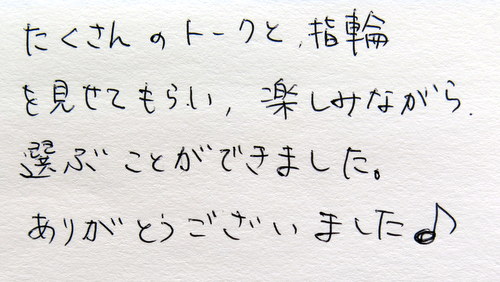 たくさんのトークと、指輪
を見せてもらい、楽しみながら
選ぶことができました。
ありがとうございました♪